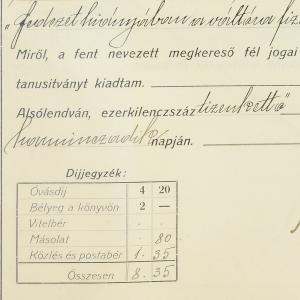 „fedezet hiányában a váltóra fiz
Miről, a fent nevezett megkereső fél jogai
tanusitványt kiadtam.
Alsólendván, ezerkilenczszáz tizenkettő
harminczadik napján.
Díjjegyzék:
Óvásdíj 4 20
Bélyeg a könyvön 2 —
Vitelbér . .
Másolat . 80
Közlés és postabér 1. 35
Összesen 8. 35